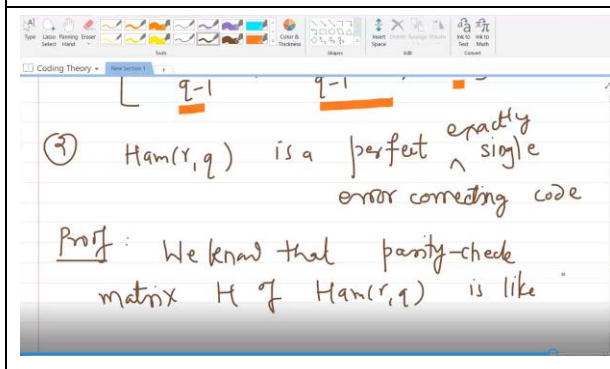 Type Lasso Select Panning Hand Eraser Color & Thickness Insert Space Delete Arrange Ink to Text Ink to Math
Tools Shapes Edit Convert
Coding Theory New Section 1 +
q-1 q-1
② Ham(r,q) is a perfect exactly single
error correcting code
Proof : We know that parity-check
matrix H of Ham(r,q) is like